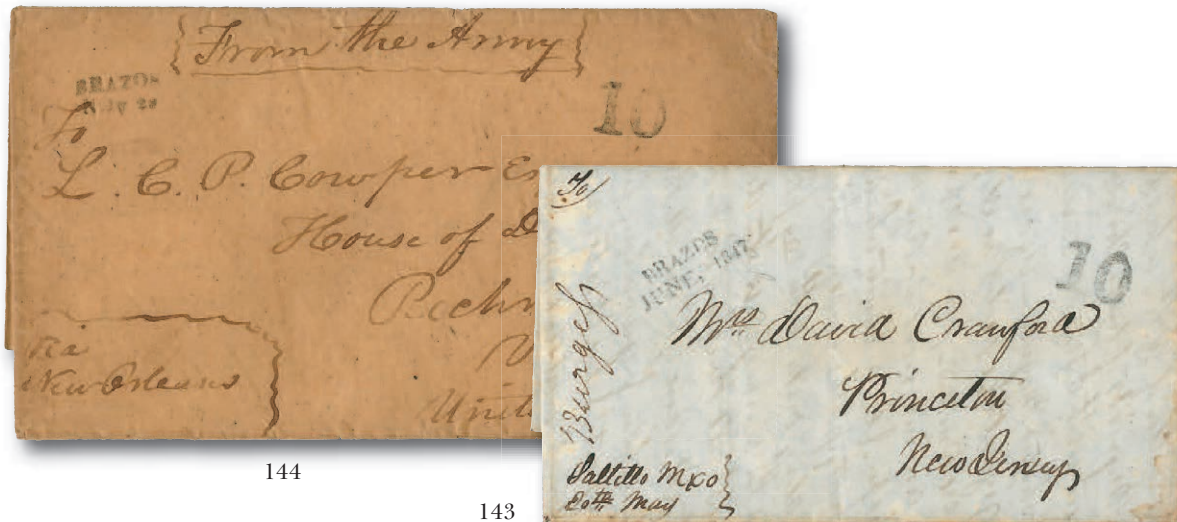 {From the Army}
BRAZOS
10
To
L. C. P. Cowper
House of
Via
New Orleans
144
To
BRAZOS
JUNE, 1847
10
Burgess
Mrs David Crawford
Princeton
New Jersey
Saltillo Mxo
20th May
143